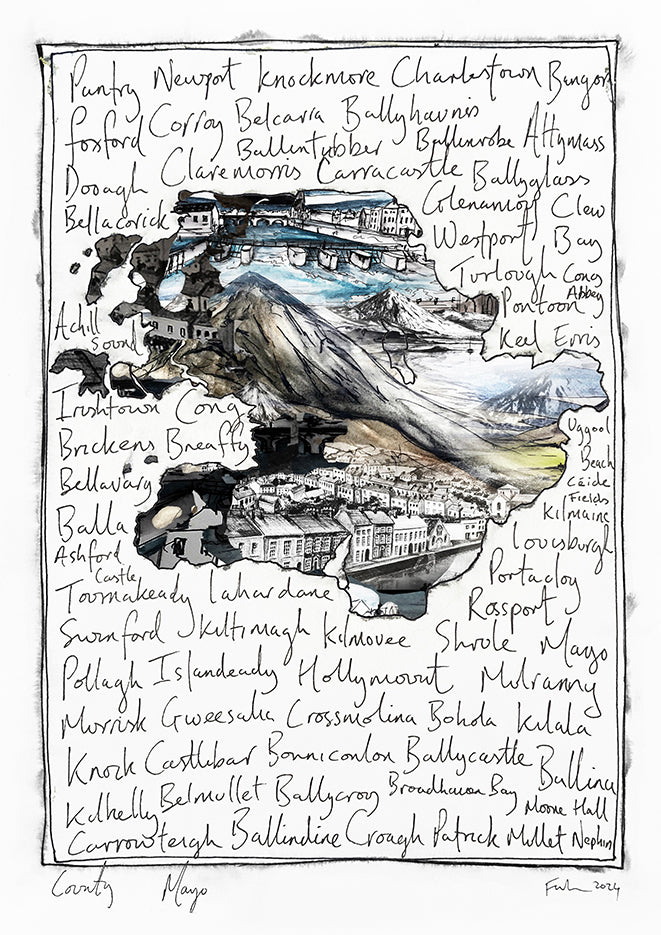 Puntry Newport Knockmore Charlestown Bangor
Foxford Corroy Belcarra Ballyhaunis
Ballintubber Ballinrobe Attymass
Dooagh Claremorris Carracastle Ballyglass
Bellacorick Glenamoy Clew
Westport Bay
Turlough Cong
Pontoon Abbey
Achill Sound Keel Erris
Irishtown Cong
Brickens Breaffy
Bellavary
Balla
Ashford
Castle
Uggool
Beach
Céide
Fields
Kilmaine
Louisburgh
Portacloy
Rossport
Tourmakeady Lahardane
Swinford Kiltimagh Kilmovee Shrule Mayo
Pollagh Islandeady Hollymount Mulranny
Murrisk Gweesalia Crossmolina Bohola Kilala
Knock Castlebar Bonniconlon Ballycastle Ballina
Kilkelly Belmullet Ballycroy Broadhaven Bay Moore Hall
Carrowteigh Ballindine Croagh Patrick Mullet Nephin
County Mayo
2024